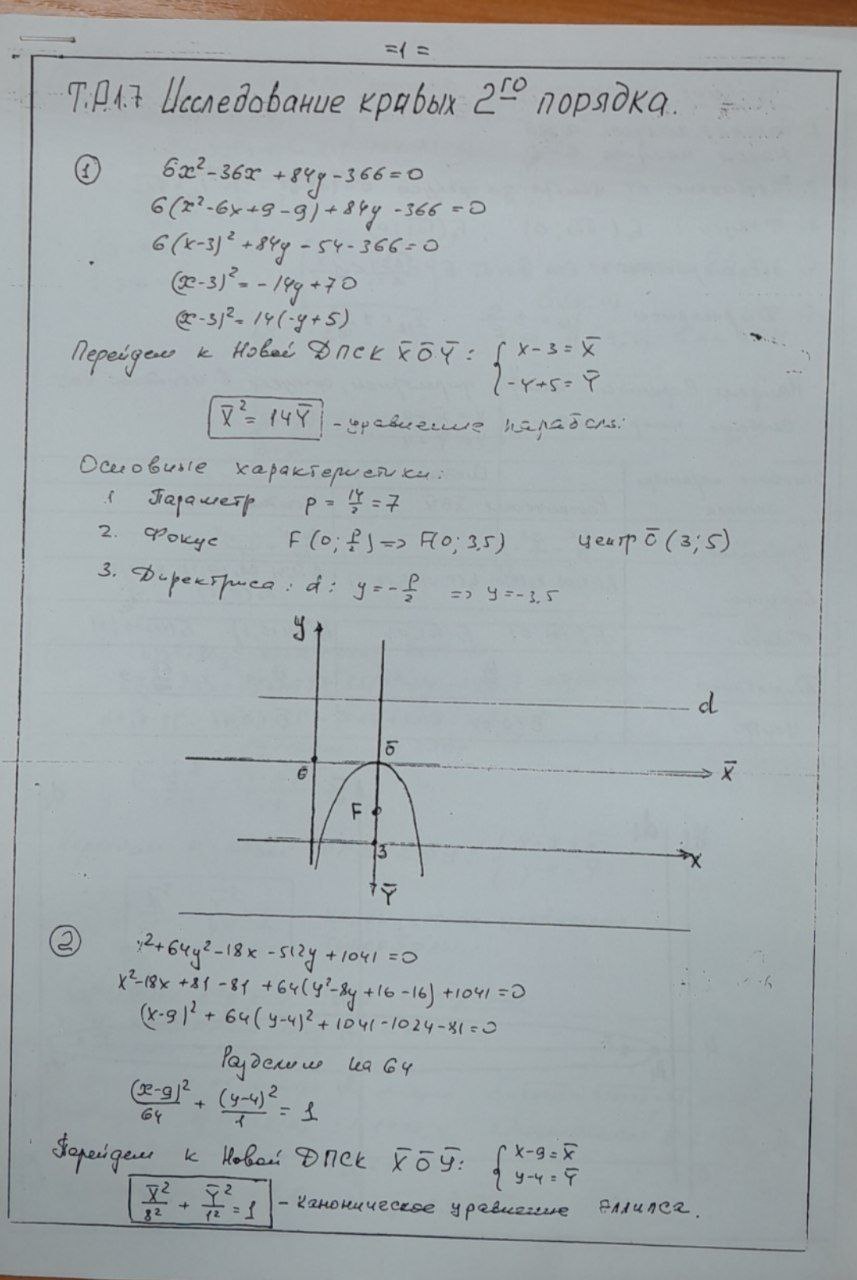 =1=
Т.Р.1.7 Исследование кривых 2го порядка.
① 6x²-36x+84y-366=0
6(x²-6x+9-9)+84y-366=0
6(x-3)²+84y-54-366=0
(x-3)²=-14y+70
(x-3)²=14(-y+5)
Перейдем к Новой ДПСК X̄ŌȲ: { x-3=X̄
-y+5=Ȳ
X̄²=14Ȳ - уравнение параболы.
Основные характеристики:
1 Параметр p=14/2=7
2. Фокус F(0; p/2)=>F(0; 3,5) центр Ō(3;5)
3. Директриса: d: y=-p/2 => y=-3,5
y
d
ō
6
X̄
F
3
x
Ȳ
② x²+64y²-18x-512y+1041=0
x²-18x+81-81+64(y²-8y+16-16)+1041=0
(x-9)²+64(y-4)²+1041-1024-81=0
Разделим на 64
(x-9)²/64 + (y-4)²/1 = 1
Перейдем к Новой ДПСК X̄ŌȲ: { x-9=X̄
y-4=Ȳ
X̄²/8² + Ȳ²/1² = 1 - Каноническое уравнение Эллипса.